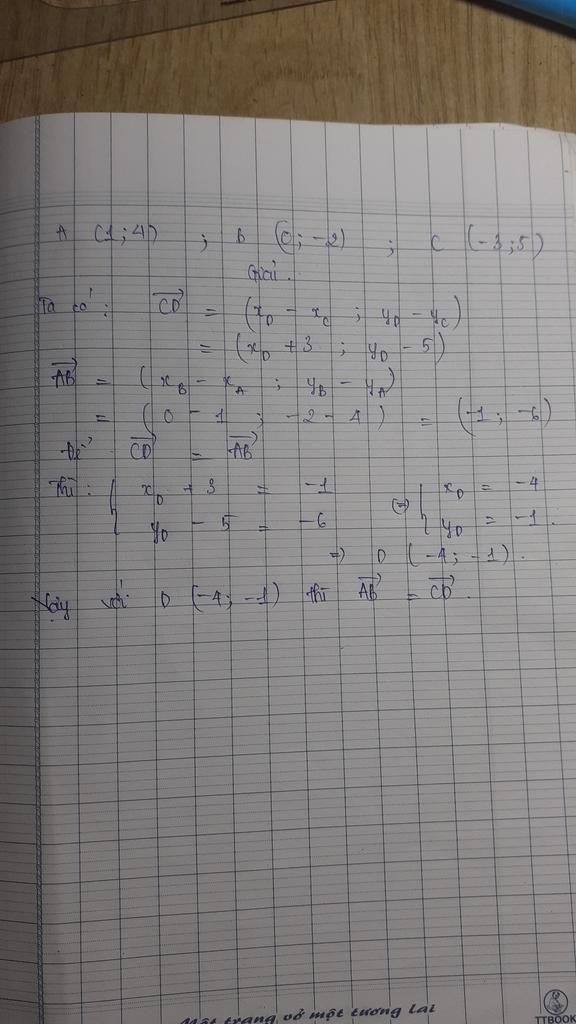 A (1; 4) ; B (0; -2) ; C (-3; 5)
Giải.
Ta có: $\overrightarrow{CD}$ = (x_D - x_C ; y_D - y_C)
= (x_D + 3 ; y_D - 5)
$\overrightarrow{AB}$ = (x_B - x_A ; y_B - y_A)
= (0 - 1 ; -2 - 4) = (-1; -6)
Để $\overrightarrow{CD}$ = $\overrightarrow{AB}$
Thì: { x_D + 3 = -1 (=) { x_D = -4
y_D - 5 = -6 y_D = -1.
=> D (-4; -1).
Vậy với D (-4; -1) thì $\overrightarrow{AB}$ = $\overrightarrow{CD}$.
Một trang vở một tương lai
TTBOOK